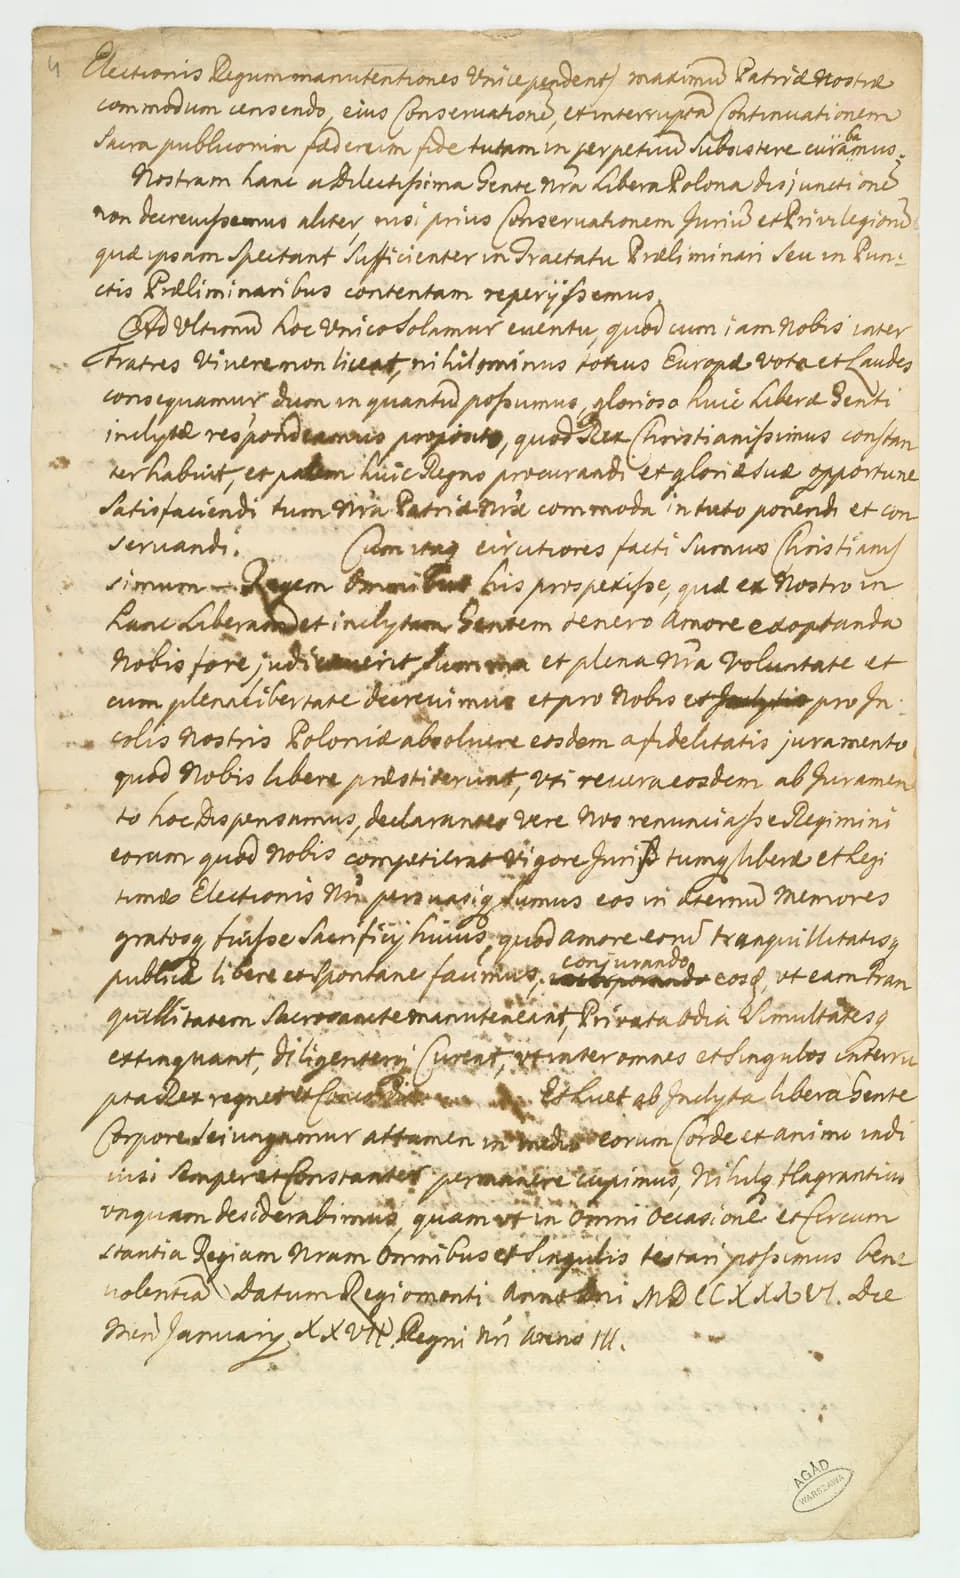 4
Electionis Regum manutentiones Unice pendent, maximũ Patriæ Nostræ
commodum censendo, eius Conservationẽ, et interruptã Continuationem
Sacra publicorum fædereum fide tutam in perpetuũ Subsistere curabamus.
Nostram hanc a Dilectissima Gente Nrã Libera Polona disjunctionẽ
non decrevissemus aliter, nisi prius Conservationem Juriũ et Privilegiorũ
quæ ipsam Spectant Sufficienter in Tractatu Præliminari Seu in Pun-
ctis Præliminaribus contentam reperijssemus.
Ad Ultimũ hoc Unico Solamur eventu, quod cum iam Nobis inter
fratres Vivere non liceat, nihilominus totius Europæ Vota et Laudes
consequamur, dum in quantũ possumus, glorioso huic Liberæ Genti
inclytæ respondeamus proposito, quod Rex Christianissimus constan
ter habuit, et pacem huic Regno procurandi et gloriæ suæ opportune
Satisfaciendi tum Nrã Patriæ Nræ commoda in tuto ponendi et con
servandi. Cum itaq certiores facti Sumus Christianis
simum Regem Omnibus his prospexisse, quæ ex Nostro in
hanc Liberam et inclytam Gentem tenero Amore exoptanda
Nobis fore judicaverit, Summa et plena Nrã Voluntate et
cum plena libertate decrevimus et pro Nobis et Inclytis pro In-
colis Nostris Poloniæ absolvere eosdem a fidelitatis juramento
quod Nobis libere præstiterunt, Uti revera eosdem ab Juramen
to hoc Dispensamus, declarantes Vere Nos renunciasse Regimini
eorum quod Nobis competierat Vigore Juris tumq liberæ et Legi
timæ Electionis Nrĩ persuasiq Sumus eos in æternũ Memores
gratosq fuisse Sacrificij huius, quod amore eorũ tranquillitatisq
publicæ libere et Spontane facimus, conjurando eosq, ut eam Tran
quillitatem Sacrosancte manuteneant, Privata Odia Simultatesq
extinguant, diligenterq Curent, ut inter omnes et Singulos interru
pta Pax regnet et Concordia. Et licet ab Inclyta libera Gente
Corpore Seiungamur attamen in medio eorum Corde et animo indi
visi Semper et Constanter permanere cupimus, Nihilq flagrantius
unquam desiderabimus, quam ut in Omni Occasionẽ et Circum
stantia Regiam Nram Omnibus et Singulis testari possimus bene
volentiã Datum Regiomonti Anno Dni MDCCXXXVI. Die
Men Januarij XXVII. Regni Nri Anno III.
AGAD
WARSZAWA